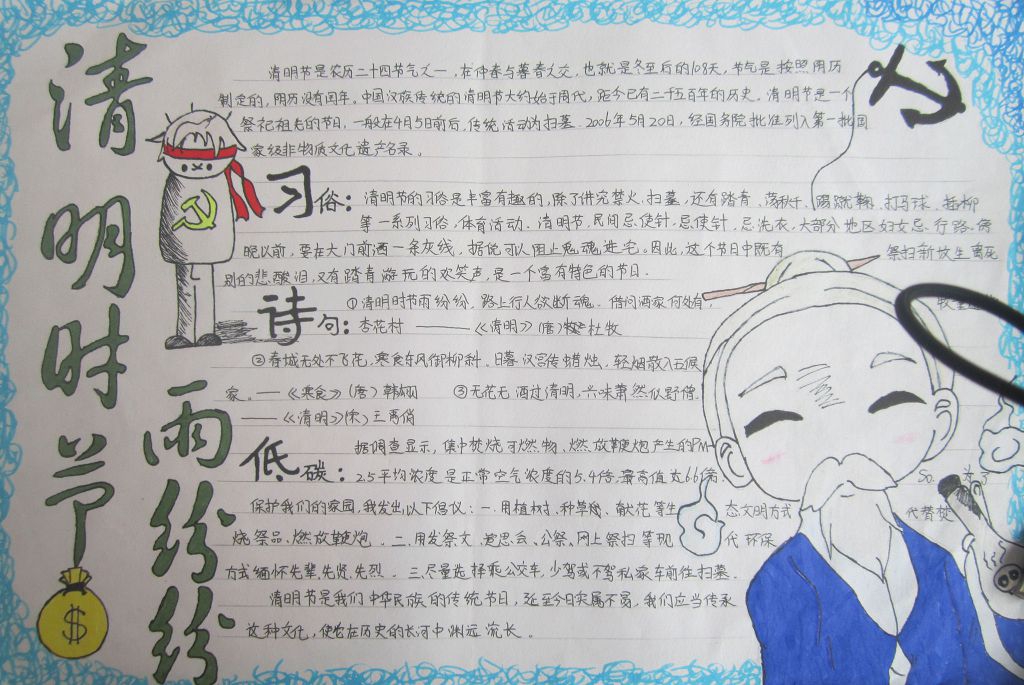 清明时节
雨纷纷
清明节是农历二十四节气之一，在仲春与暮春之交，也就是冬至后的108天，节气是按照阳历
制定的，阴历没有闰年。中国汉族传统的清明节大约始于周代，距今已有二千五百年的历史。清明节是一个
祭祀祖先的节日，一般在4月5日前后，传统活动为扫墓。2006年5月20日，经国务院批准列入第一批国
家级非物质文化遗产名录。
习俗：清明节的习俗是丰富有趣的，除了讲究禁火、扫墓，还有踏青、荡秋千、踢蹴鞠、打马球、插柳
等一系列习俗，体育活动。清明节，民间忌使针，忌使针，忌洗衣，大部分地区妇女忌行路。傍
晚以前，要在大门前洒一条灰线，据说可以阻止鬼魂进宅。因此，这个节日中既有 祭扫新坟生离死
别的悲酸泪，又有踏青游玩的欢笑声，是一个富有特色的节日。
诗句：①清明时节雨纷纷，路上行人欲断魂。借问酒家何处有， 牧童
杏花村 ——《清明》（唐）杜牧
②春城无处不飞花，寒食东风御柳斜。日暮汉宫传蜡烛，轻烟散入五侯
家。——《寒食》（唐）韩翃 ③无花无酒过清明，兴味萧然似野僧。
——《清明》（宋）王禹偁
低碳：据调查显示，集中焚烧可燃物、燃放鞭炮产生的PM
2.5平均浓度是正常空气浓度的5.4倍，最高值达6.6倍。 So. 为了
保护我们的家园，我发出以下倡仪：一.用植树、种草、献花等生 态文明方式 代替焚
烧祭品、燃放鞭炮。二.用发祭文、追思会、公祭、网上祭扫等现 代环保
方式缅怀先辈、先贤、先烈。三.尽量选择乘公交车，少驾或不驾私家车前往扫墓。
清明节是我们中华民族的传统节日，延至今日实属不易，我们应当传承
这种文化，使它在历史的长河中渊远流长。
$